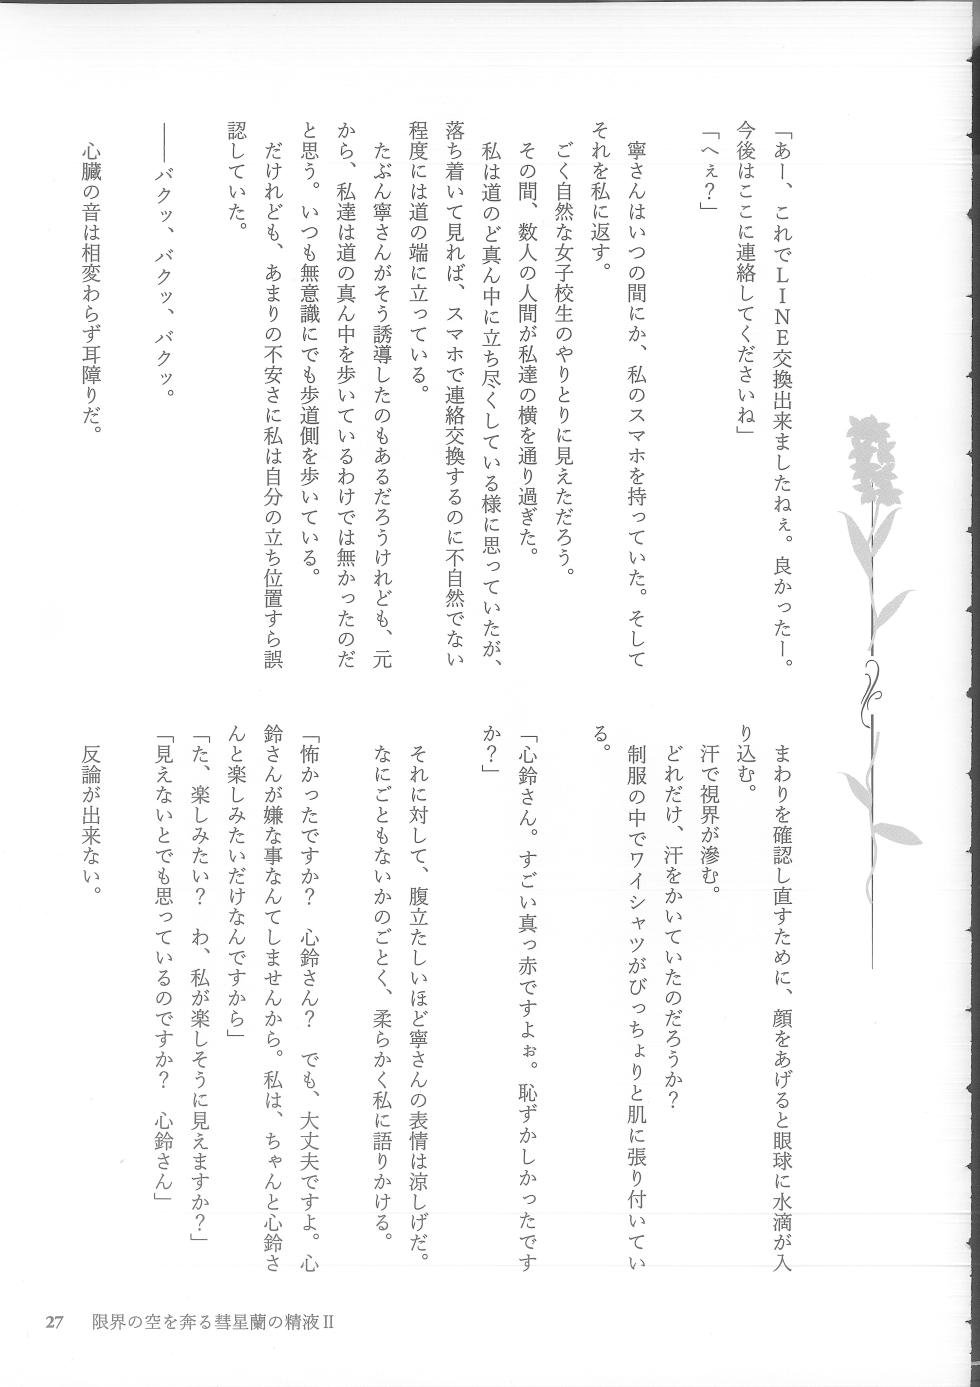 「あー、これでLINE交換出来ましたねぇ。良かったー。
今後はここに連絡してくださいね」
「へぇ？」
寧さんはいつの間にか、私のスマホを持っていた。そして
それを私に返す。
ごく自然な女子校生のやりとりに見えただろう。
その間、数人の人間が私達の横を通り過ぎた。
私は道のど真ん中に立ち尽くしている様に思っていたが、
落ち着いて見れば、スマホで連絡交換するのに不自然でない
程度には道の端に立っている。
たぶん寧さんがそう誘導したのもあるだろうけれども、元
から、私達は道の真ん中を歩いているわけでは無かったのだ
と思う。いつも無意識にでも歩道側を歩いている。
だけれども、あまりの不安さに私は自分の立ち位置すら誤
認していた。
――バクッ、バクッ、バクッ。
心臓の音は相変わらず耳障りだ。
まわりを確認し直すために、顔をあげると眼球に水滴が入
り込む。
汗で視界が滲む。
どれだけ、汗をかいていたのだろうか？
制服の中でワイシャツがびっちょりと肌に張り付いてい
る。
「心鈴さん。すごい真っ赤ですよぉ。恥ずかしかったです
か？」
それに対して、腹立たしいほど寧さんの表情は涼しげだ。
なにごともないかのごとく、柔らかく私に語りかける。
「怖かったですか？　心鈴さん？　でも、大丈夫ですよ。心
鈴さんが嫌な事なんてしませんから。私は、ちゃんと心鈴さ
んと楽しみたいだけなんですから」
「た、楽しみたい？　わ、私が楽しそうに見えますか？」
「見えないとでも思っているのですか？　心鈴さん」
反論が出来ない。
27　限界の空を奔る彗星蘭の精液Ⅱ